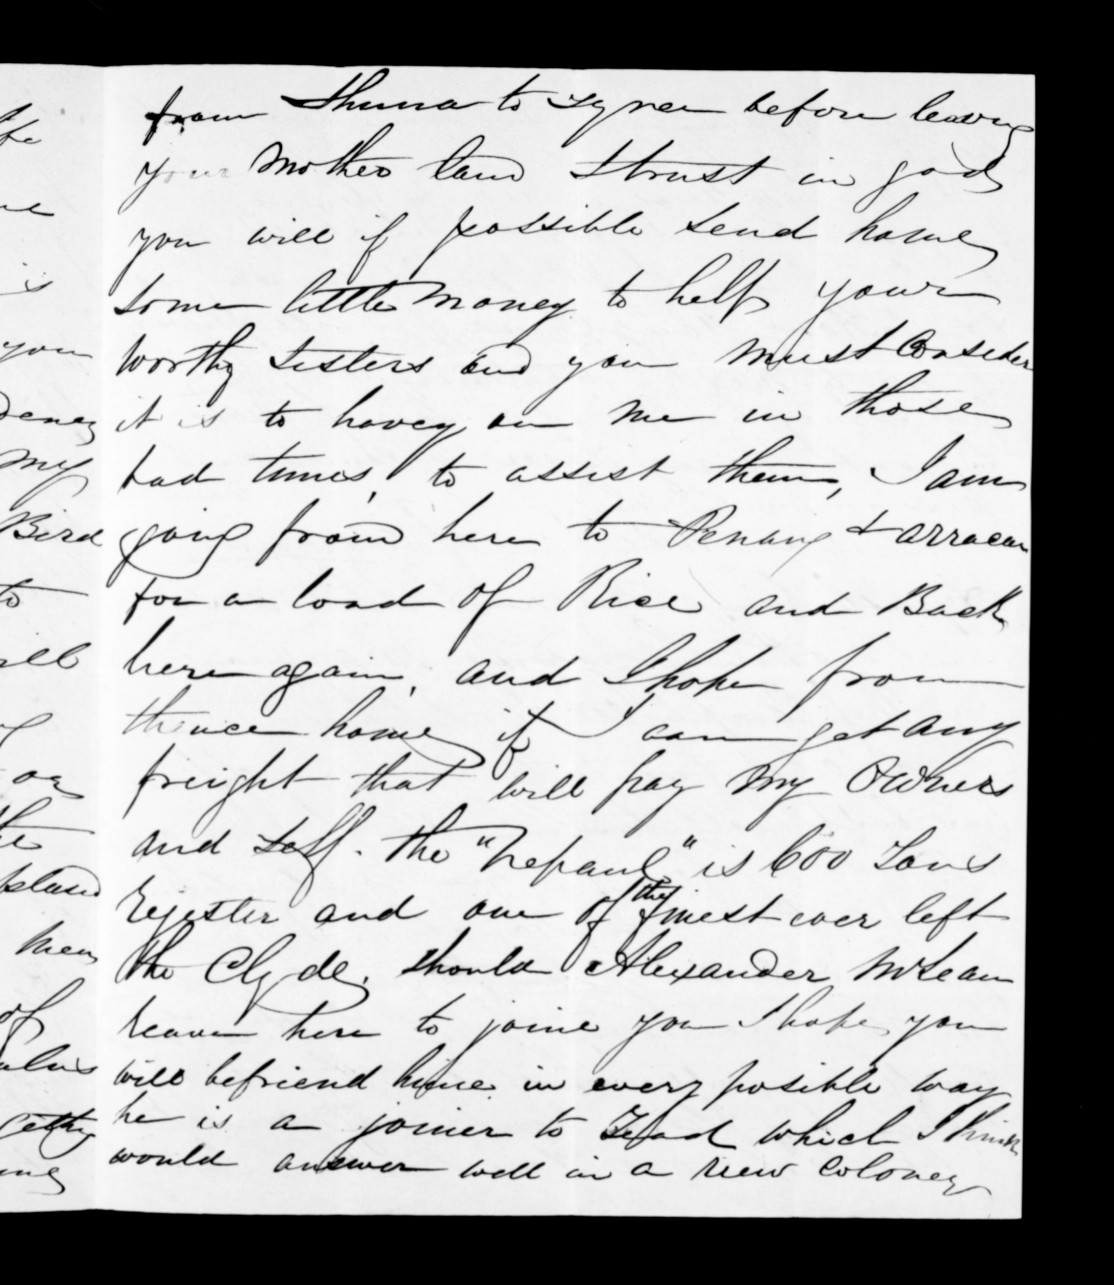 from to Tyree before leaving
your Mother land I trust in god
you will if possible send home
some little money to help your
worthy sisters and you must Consider
it is to havey on me in those
bad times, to assist them, I am
going from here to Penang & arracan
for a load of Rice and Back
here again, and I hope from
thence home if I can get any
freight that will pay my Owners
and Self. the "Nepaul" is 600 Tons
Rejester and one of the finest ever left
the Clyde, should Alexander McLean
leave here to joine you I hope you
will befriend hime in every posible way
he is a joiner to Tead which I think
would answer well in a new Coloney